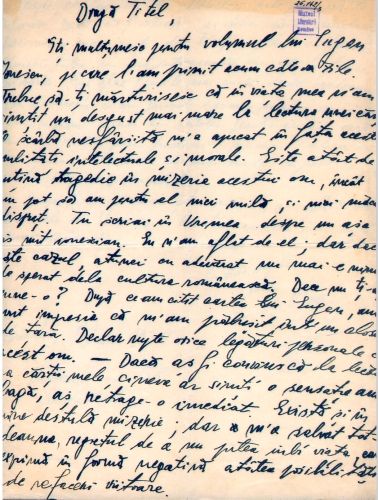 Dragă Titel,
Muzeul
Literaturii
Române
Îți mulțumesc pentru volumul lui Eugen
Ionescu, pe care l-am primit acum câteva zile.
Trebue să-ți mărturisesc că în viața mea n'am
simțit un desgust mai mare la lectura unei cărți
O scârbă nesfârșită m'a apucat în fața acestei
nulități intelectuale și morale. Este atât de
puțină tragedie în mizeria acestui om, încât
nu pot să am pentru el nici milă și nici măcar
dispreț. Tu scriai în Vremea despre un asa
zis mit ionescian. Eu n'am aflat de el; dar dacă
este cazul, atunci cu adevărat nu mai e nimic
de sperat dela cultura românească. Dece nu ți-
spune-o? După ce am citit cartea lui Eugen, am
avut impresia că m'am plimbat într'un closet
de gară. Declar rupte orice legături personale cu
acest om. — Dacă aș fi convins că la lectura
a cărții mele cineva ar simți o senzație
aș retrage-o imediat. Există și în
mine destulă mizerie; dar m'a salvat tot-
deauna, regretul de a nu putea iubi viața, care
exprimă în formă negativă atâtea posibilități
de refacere viitoare.